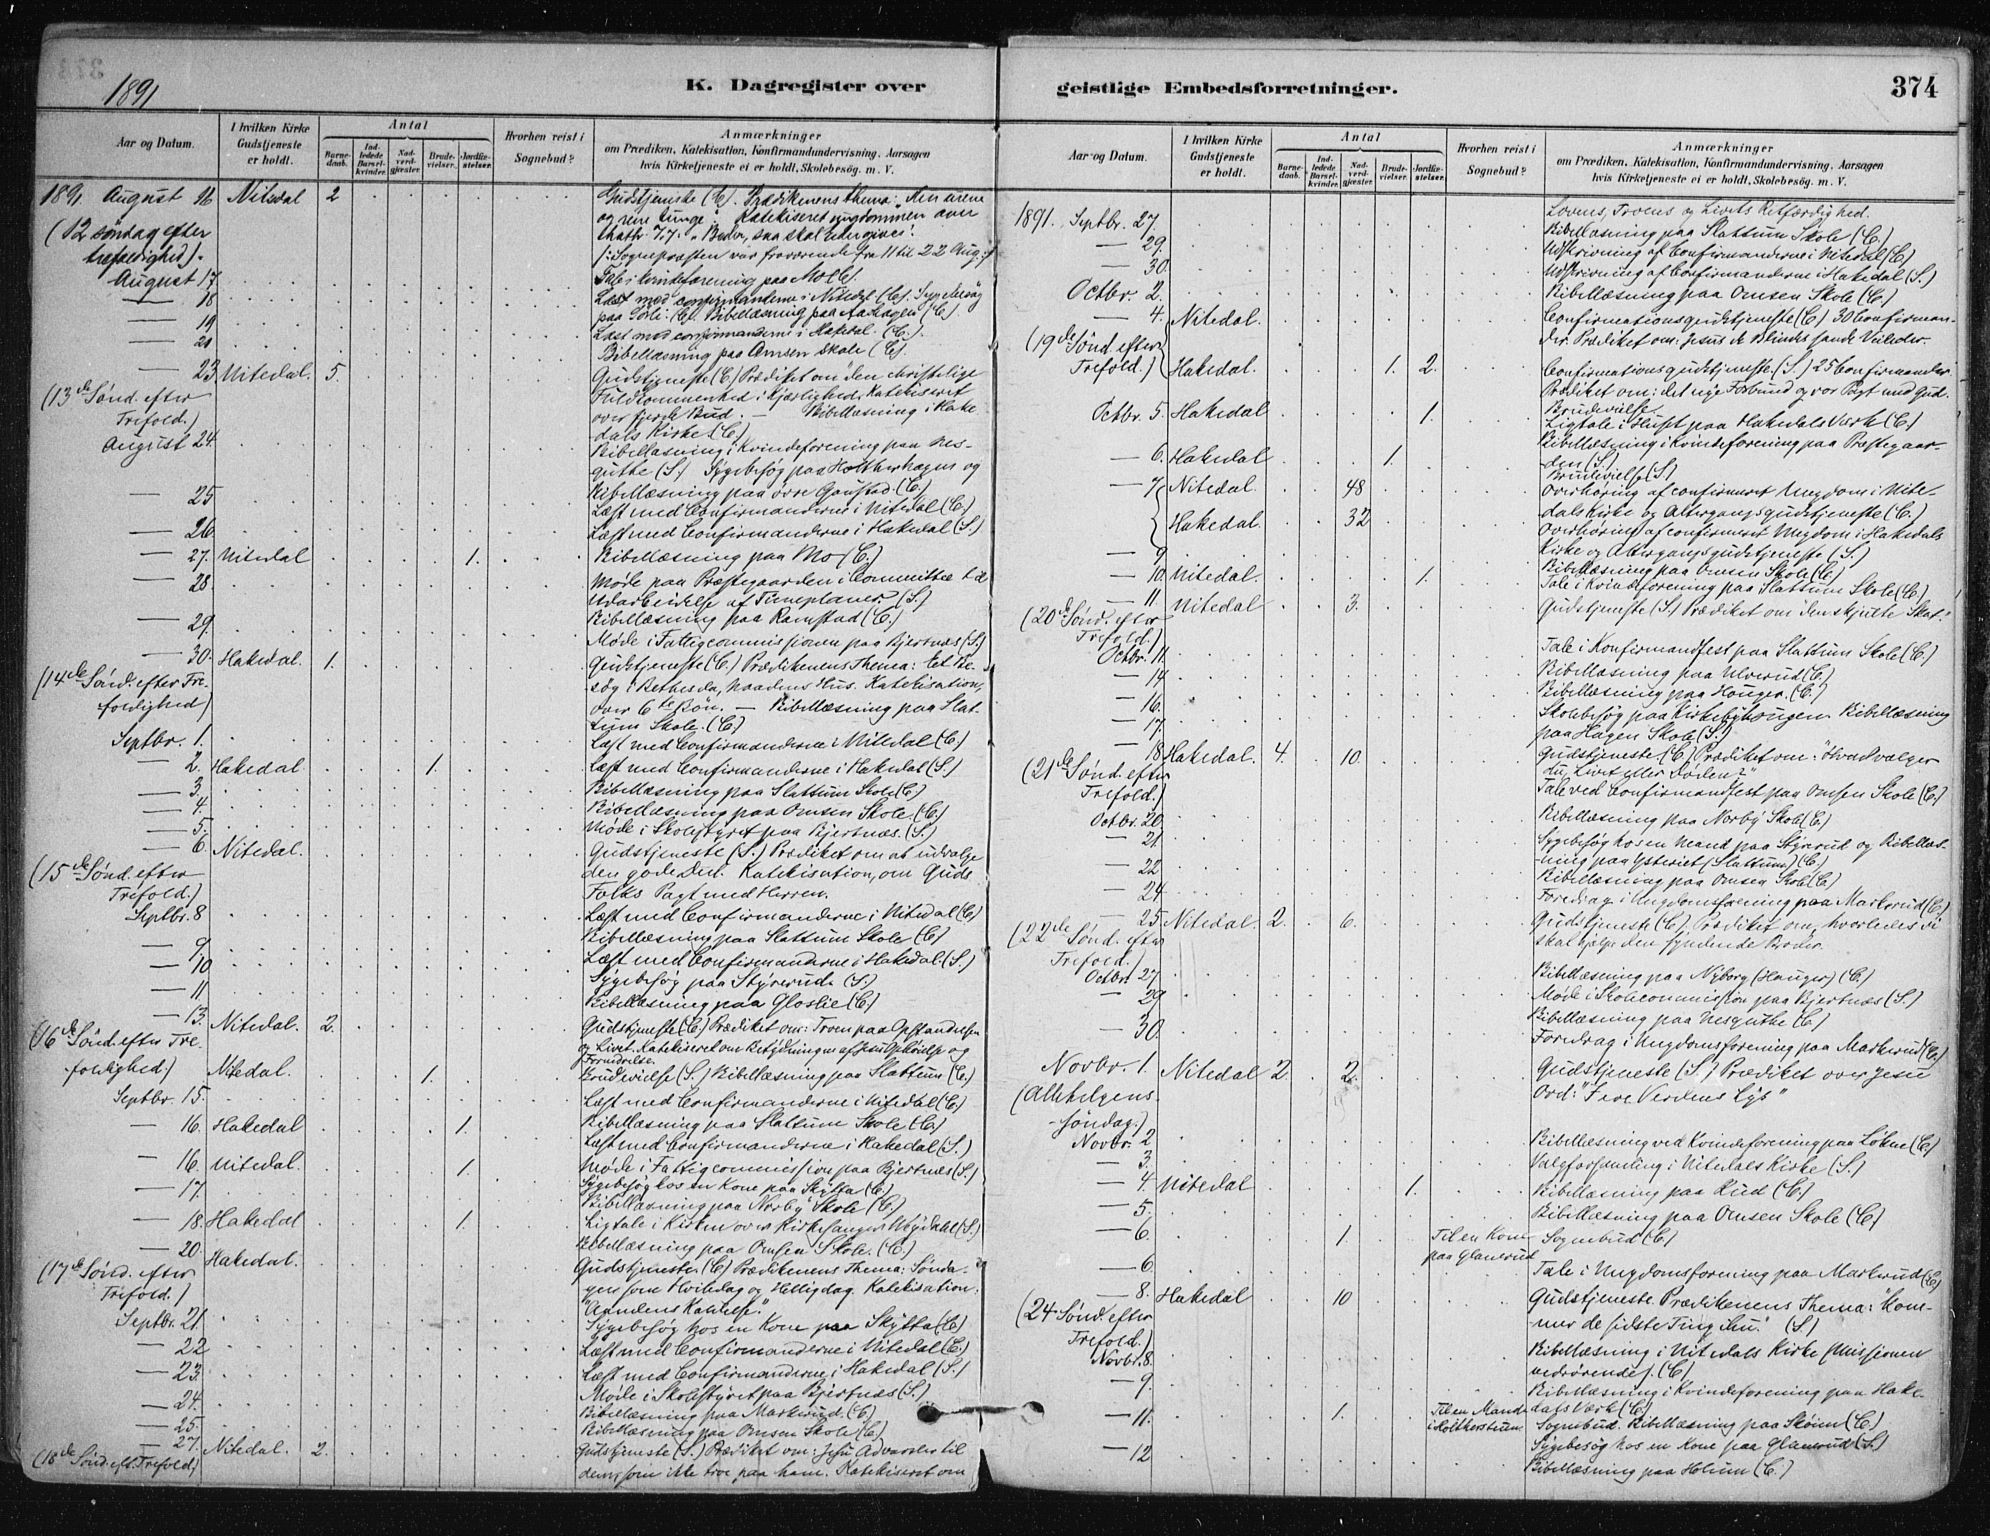 1891
K. Dagregister over
Aar og Datum.
I hvilken Kirke Gudstjeneste er holdt.
Antal
Barne-daab.
Ind-ledede Barsel-kvinder.
Nad-verd-gjæster.
Brude-vielser.
Jordfæ-stelser.
Hvorhen reist i Sognebud?
Anmærkninger
om Prædiken, Katekisation, Konfirmandundervisning, Aarsagen
hvis Kirketjeneste ei er holdt, Skolebesøg. m. V.
1891 August 16 Nitedal 2 Gudstjeneste (C). Prædikenens Thema: "Den urene
og rene tunge". Katekiseret ungdommen over
(12 søndag efter
Matth. 7,7. "Beder, saa skal eder gives".
trefoldighed).
/: Sognepræsten var fraværende fra 11 til 22 Aug :/
August 17 Tale i kvindeforening paa Mo (C).
— 18 Læst med confirmanderne i Nitedal (C). Sygebesøg
— 19 Bibellæsning paa (C).
Læst med confirmanderne i Hakedal. (C.)
— 21 Bibellæsning paa Omsen skole (C).
— 23 Nitedal. 5. Gudstjeneste (C.) Prædiket om "den christelige
(13de Sønd. efter Fuldkommenhed i Kjærlighed. Katekiseret
Trefold.) over fjerde Bud. — Bibellæsning i Hake-
dals Kirke (C.)
August 24. Bibellæsning i Kvindeforening paa Nes-
guthe (S.) Sygebesøg paa Holtherhagen og
Bibellæsning paa øvre Gaustad. (C.)
— 25 Læst med Confirmanderne i Nitedal (C.)
— 26. Læst med Confirmanderne i Hakedal (S.)
— 27. Nitedal 1. Bibellæsning paa Mo (C.)
— 28. Møde paa Præstegaarden i Committee til
Udarbeidelse af Timeplaner. (S.)
— 29. Bibellæsning paa Ramstad (C.)
Møde i Fattigcommissionen paa Bjertnæs (S.)
— 30. Hakedal. 1. Gudstjeneste (C.) Prædikenens Thema: Et Be-
(14de Sønd. efter Tre-
søg i Bethesda, Naadens Hus. Katekisation,
foldighed)
over 6te Bøn. — Bibellæsning paa Slat-
tum Skole. (C.)
Septbr. 1. Læst med Confirmanderne i Nitedal (C.)
— 2. Hakedal 1. Læst med Confirmanderne i Hakedal (S.)
— 3. Bibellæsning paa Slattum Skole (C)
— 4. Bibellæsning paa Omsen Skole. (C.)
— 5. Møde i Skolestyret paa Bjertnæs. (S.)
— 6. Nitedal. Gudstjeneste (S.) Prædiket om at udvælge
(15de Sønd. efter den gode Del. Katekisation, om Guds
Trefold.) Folks Pagt med Herren.
Septbr. 8 Læst med Confirmanderne i Nitedal (C)
Bibellæsning paa Slattum Skole (C)
— 9 Læst med Confirmanderne i Hakedal. (S.)
— 10 Sygebesøg paa Styrerud. (S.)
— 11 Bibellæsning paa Gloslie (C)
— 13. Nitedal. 2. Gudstjeneste (C.) Prædiket om: Troen paa Opstandelsen
(16de Sønd. efter Tre-
og Livet. Katekiseret om Betydningen af Jesu Ophøielse og
Fornedrelse.
foldighed.) Nitedal. 1. Brudevielse (S.) Bibellæsning paa Slattum (C.)
Septbr. 15. Læst med Confirmanderne i Nitedal (C.)
— 16. Hakedal 1. Bibellæsning paa Slattum Skole (C.)
Læst med Confirmanderne i Hakedal (S.)
— 16. Nitedal. 1. Møde i Fattigcommission paa Bjertnes (S.)
— 17. Sygebesøg hos en Kone paa Skytta (C.)
Bibellæsning paa Norby Skole (C.)
— 18. Hakedal 1. Ligtale i Kirken over Kirkesanger (S.)
Bibellæsning paa Omsen Skole. (C.)
— 20. Hakedal. Gudstjeneste. (C.) Prædikenens Thema: Sønda-
(17de Sønd. efter gen som Hviledag og Helligdag. Katekisation:
Trefold.) "Aandens Kaldelse."
Septbr. 21. Sygebesøg hos en Kone paa Skytta (C.)
— 22 Læst med Confirmanderne i Nitedal (C.)
— 23. Læst med Confirmanderne i Hakedal (S.)
— 24. Møde i Skolestyret paa Bjertnæs (S.)
Bibellæsning paa Markerud. (C.)
— 25. Bibellæsning paa Omsen Skole (C.)
— 27. Nitedal. 2. Gudstjeneste (S.) Prædiket om: Jesu Advarsler til
(18de Sønd. eft. Trefold) dem, som ikke tror paa ham. Katekiseret om
geistlige Embedsforretninger.
374
Aar og Datum.
I hvilken Kirke Gudstjeneste er holdt.
Antal
Barne-daab.
Ind-ledede Barsel-kvinder.
Nad-verd-gjæster.
Brude-vielser.
Jordfæ-stelser.
Hvorhen reist i Sognebud?
Anmærkninger
om Prædiken, Katekisation, Konfirmandundervisning, Aarsagen
hvis Kirketjeneste ei er holdt, Skolebesøg. m. V.
Lovens, Troens og Livets Retfærdighed.
1891. Septbr. 27. Bibellæsning paa Slattum Skole (C.)
— 29. Udskrivning af Confirmanderne i Nitedal (C)
— 30. Udskrivning af Confirmanderne i Hakedal (S.)
Octbr. 2. Bibellæsning paa Omsen Skole (C.)
— 4. Nitedal. Confirmationsgudstjeneste (C.) 30 Confirman-
(19de Sønd. efter der. Prædiket om: Jesus de Blindes sande Veileder.
Trefold.) Hakedal. 1. 2. Confirmationsgudstjeneste. (S.) 25 Confirmander
Prædiket om: det nye Forbund og vor Pagt med Gud.
Brudevielse.
Octbr. 5. Hakedal 1. Ligtale i Huset paa Hakedals Værk (C.)
Bibellæsning i Kvindeforening paa Præstegaar-
den (S.)
— 6. Hakedal 1. Brudevielse (S.)
— 7 Nitedal. 48 Overhøring af confirmeret Ungdom i Nite-
dals Kirke og Altergangsgudstjeneste (C.)
Hakedal. 32 Overhøring af confirmeret Ungdom i Hakedals
Kirke og Altergangsgudstjeneste (S.)
— 9 Bibellæsning paa Omsen Skole (C)
— 10. Nitedal. 1. Tale i Kvindeforening paa Slattum Skole (C.)
— 11 Nitedal 3. Gudstjeneste (S.) Prædiket om "den skjulte Skat".
(20de Sønd. efter
Trefold.)
Octbr. 11. Tale i Konfirmandfest paa Slattum Skole (C.)
— 14 Bibellæsning paa Ulverud (C.)
— 16. Bibellæsning paa Hauger. (C.)
— 17. Skolebesøg paa Kirkebyhaugen. Bibellæsning
paa Hagen Skole (S.)
— 18 Hakedal. 4. 10. Gudstjeneste (C.) Prædiket om: "Hvad vælger
(21de Sønd. efter du, Livet eller Døden?"
Trefold.) Tale ved Confirmandfest paa Omsen Skole (C.)
Octbr. 20 Bibellæsning paa Norby Skole (C.)
— 21. Sygebesøg hos en Mand paa Styrerud og Bibellæs-
ning paa Ysteriet (Slattum) (C.)
— 22 Bibellæsning paa Omsen Skole (C)
— 24 Foredrag i Ungdomsforening paa Markerud (C.)
— 25 Nitedal. 2. 6. Gudstjeneste (C.) Prædiket om, hvorledes vi
(22de Sønd. efter skal hjælpe den syndende Broder.
Trefold.)
Octbr. 27 Bibellæsning paa Nyborg (Hauger) (C.)
— 29 Møde i Skolecommission paa Bjertnæs (S.)
Bibellæsning paa Nesguthe (C.)
— 30. Foredrag i Ungdomsforening paa Markerud (C.)
Novbr. 1. Nitedal 2. 2. Gudstjeneste (S.) Prædiket over Jesu
(Allehelgens- Ord: "I ere Verdens Lys"
søndag.)
Novbr. 2 Bibellæsning ved Kvindeforening paa Løkne (C.)
— 3. Valgforsamling i Nitedals Kirke (S.)
— 4. Nitedal 1. Bibellæsning paa Rud (C.)
— 5. Bibellæsning paa Omsen Skole (C)
— 6. 1. Til en Kone paa Glanerud Sognebud (C)
— 6. Tale i Ungdomsforening paa Markerud (C)
— 8. Hakedal 10 Gudstjeneste. Prædikenens Thema: "Kom-
(24 Sønd. efter mer de sidste Ting ihu". (S.)
Trefold.)
Novbr. 8. Bibellæsning i Nitedals Kirke (Missionen
vedrørende). (C)
— 9. Bibellæsning i Kvindeforening paa Hake-
dals Værk (C.)
— 11. 1. Til en Mand Sognebud. Bibellæsning paa Skøien (C.)
— 12 Sygebesøg hos en Kone paa Glanerud (S.)
Bibellæsning paa Holum (C.)